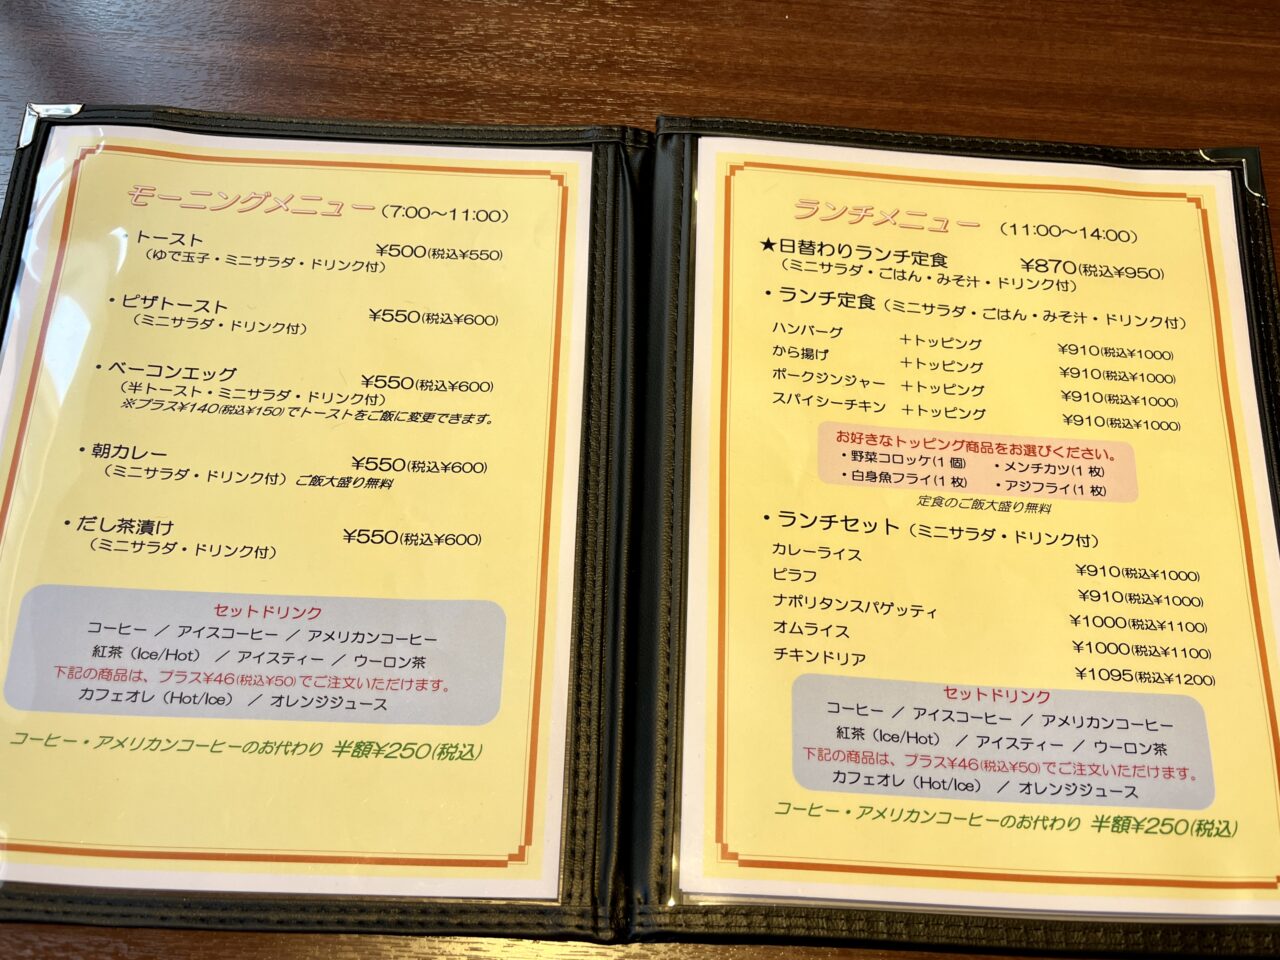 モーニングメニュー（7:00～11:00）
・トースト ¥500(税込¥550)
（ゆで玉子・ミニサラダ・ドリンク付）
・ピザトースト ¥550(税込¥600)
（ミニサラダ・ドリンク付）
・ベーコンエッグ ¥550(税込¥600)
（半トースト・ミニサラダ・ドリンク付）
※プラス¥140(税込¥150)でトーストをご飯に変更できます。
・朝カレー ¥550(税込¥600)
（ミニサラダ・ドリンク付）ご飯大盛り無料
・だし茶漬け ¥550(税込¥600)
（ミニサラダ・ドリンク付）
セットドリンク
コーヒー ／ アイスコーヒー ／ アメリカンコーヒー
紅茶（Ice/Hot） ／ アイスティー ／ ウーロン茶
下記の商品は、プラス¥46(税込¥50)でご注文いただけます。
カフェオレ（Hot/Ice） ／ オレンジジュース
コーヒー・アメリカンコーヒーのお代わり 半額¥250(税込)
ランチメニュー （11:00～14:00）
★日替わりランチ定食 ¥870(税込¥950)
（ミニサラダ・ごはん・みそ汁・ドリンク付）
・ランチ定食（ミニサラダ・ごはん・みそ汁・ドリンク付）
ハンバーグ ＋トッピング ¥910(税込¥1000)
から揚げ ＋トッピング ¥910(税込¥1000)
ポークジンジャー ＋トッピング ¥910(税込¥1000)
スパイシーチキン ＋トッピング ¥910(税込¥1000)
お好きなトッピング商品をお選びください。
・野菜コロッケ(1 個) ・メンチカツ(1 枚)
・白身魚フライ(1 枚) ・アジフライ(1 枚)
定食のご飯大盛り無料
・ランチセット（ミニサラダ・ドリンク付）
カレーライス ¥910(税込¥1000)
ピラフ ¥910(税込¥1000)
ナポリタンスパゲッティ ¥1000(税込¥1100)
オムライス ¥1000(税込¥1100)
チキンドリア ¥1095(税込¥1200)
セットドリンク
コーヒー ／ アイスコーヒー ／ アメリカンコーヒー
紅茶（Ice/Hot） ／ アイスティー ／ ウーロン茶
下記の商品は、プラス¥46(税込¥50)でご注文いただけます。
カフェオレ（Hot/Ice） ／ オレンジジュース
コーヒー・アメリカンコーヒーのお代わり 半額¥250(税込)